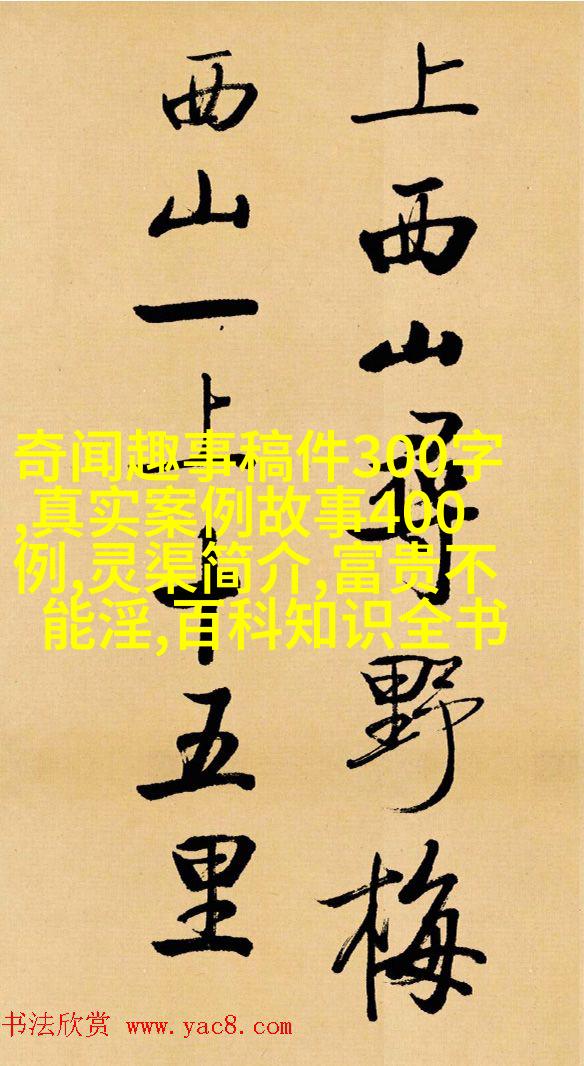 上西山尋野梅
西山一上十五里
奇闻趣事稿件300字
,真实案例故事400
例,灵渠简介,富贵不
能淫,百科知识全书
书法欣赏 www.yac8.com